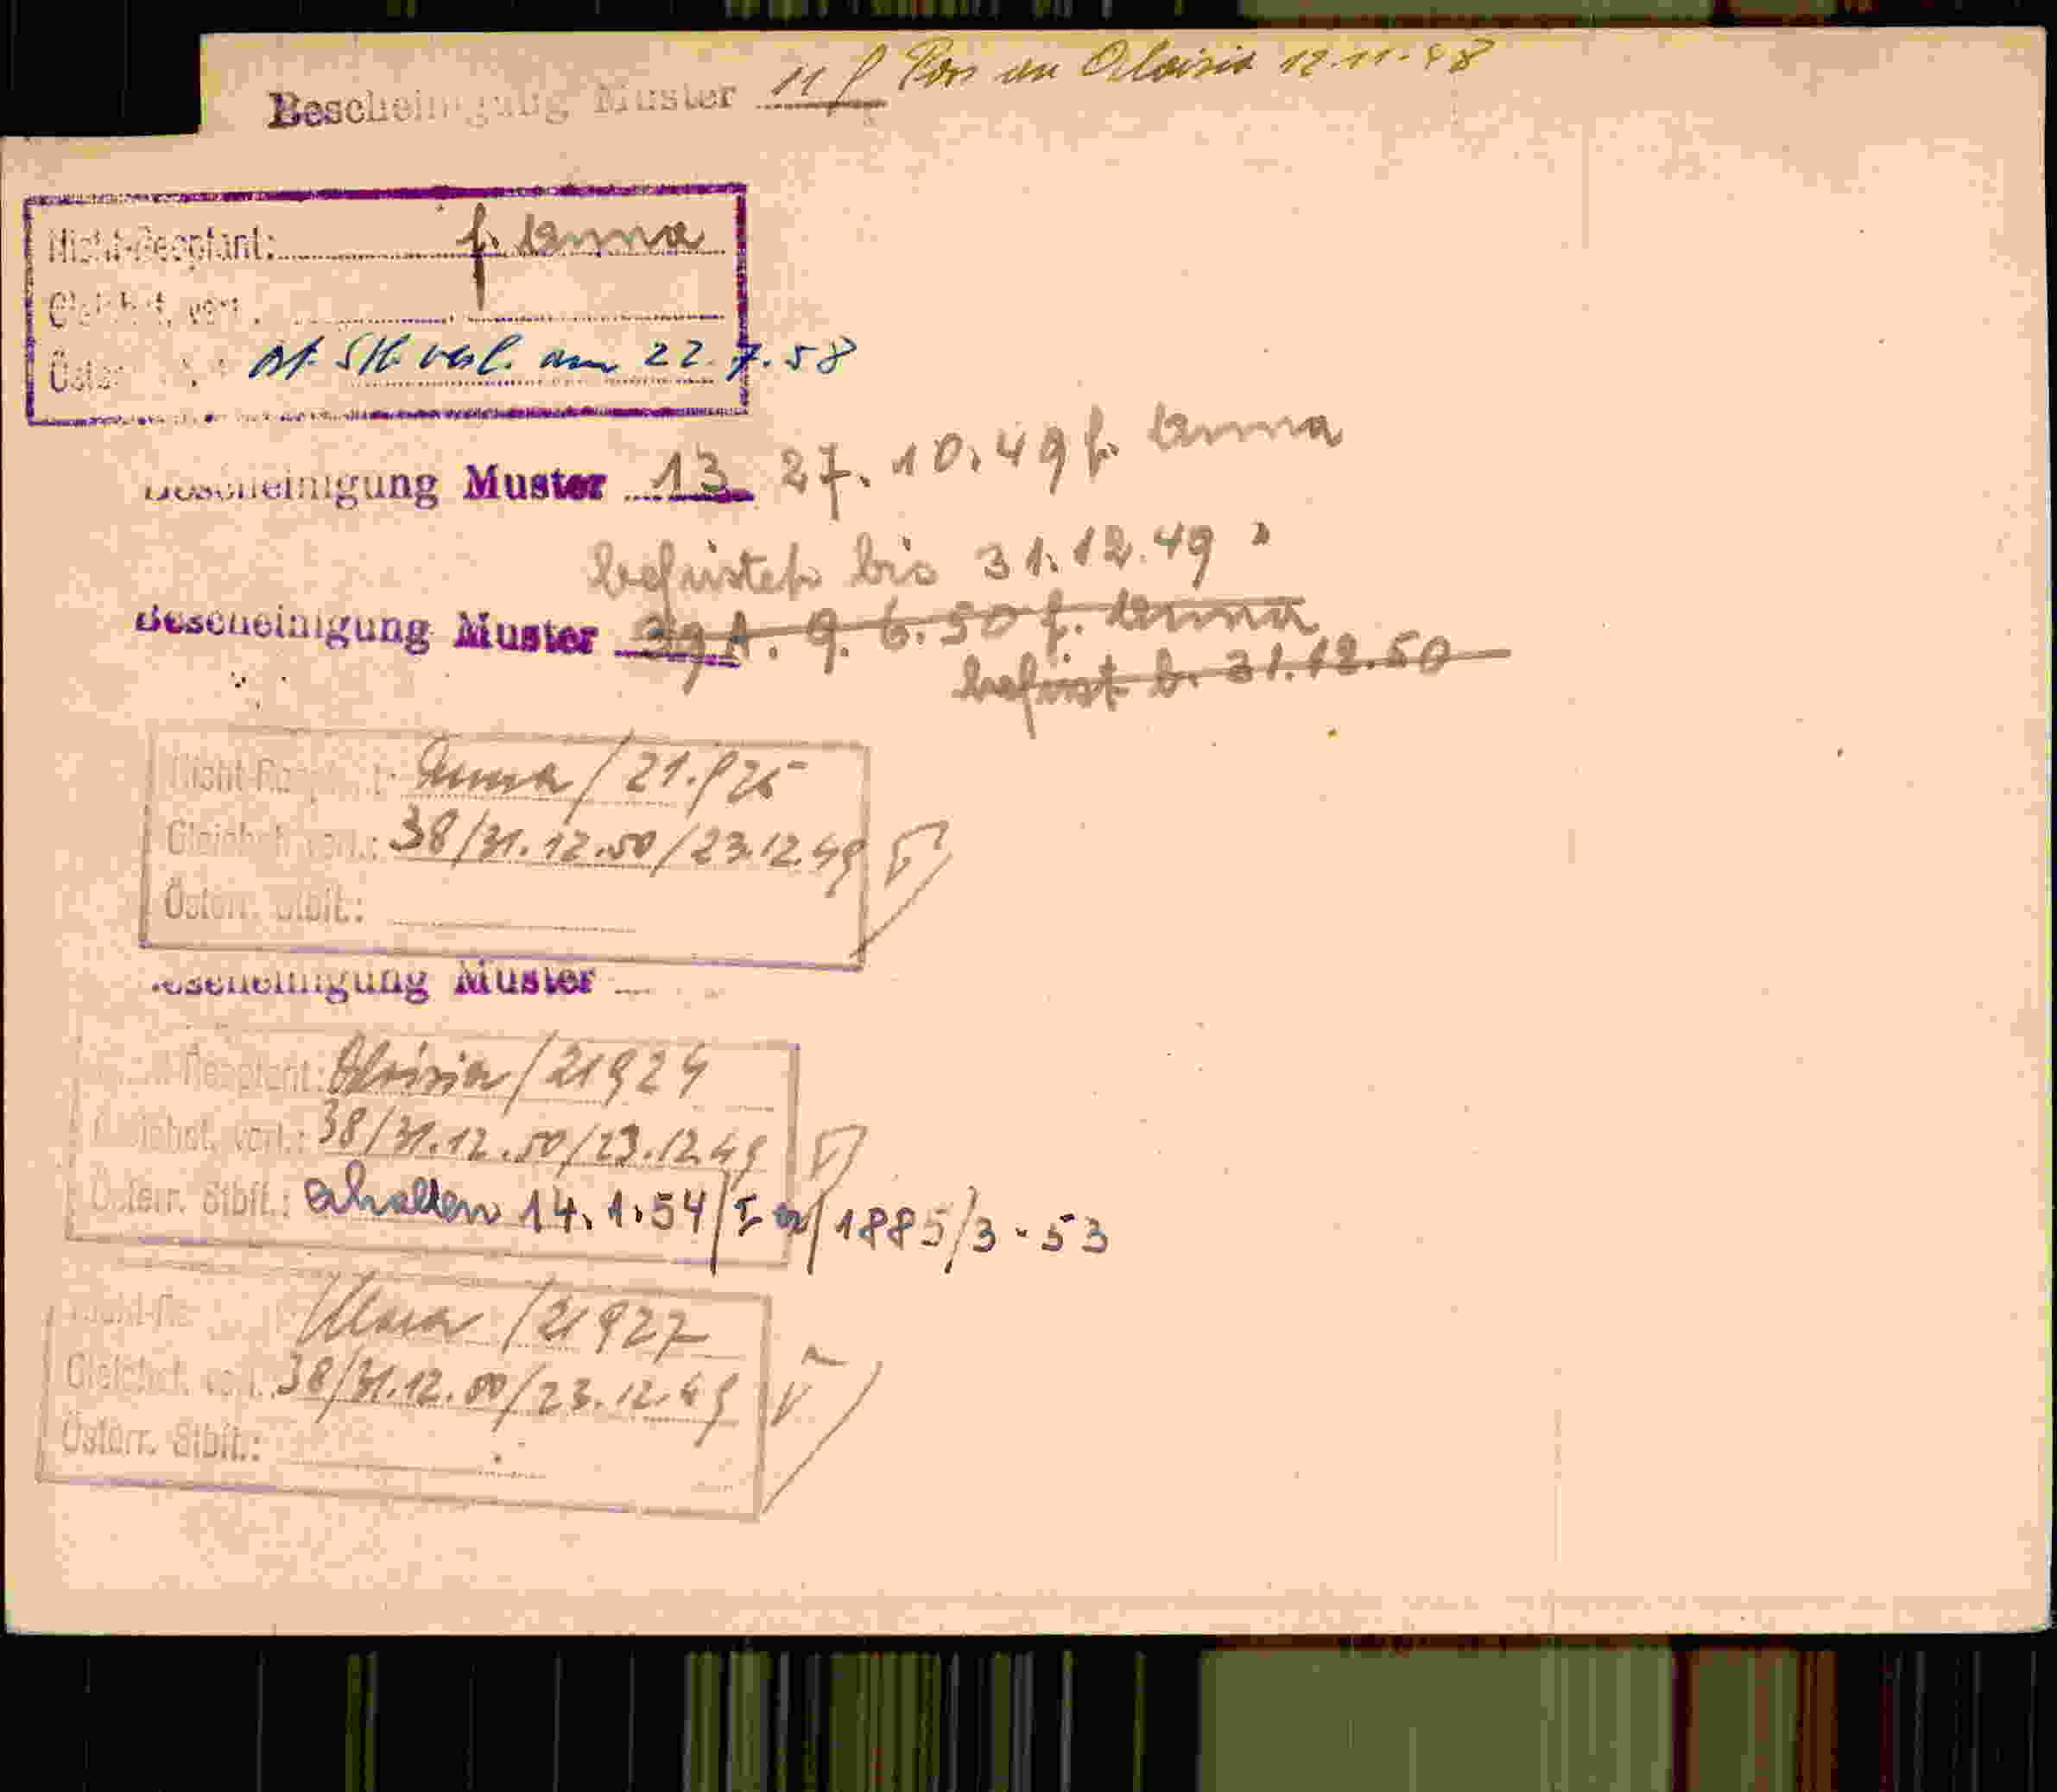 Bescheinigung Muster 11 f. an Aloisia 12.11.48
Nicht-Reoptant: f. Anna
Gleichst. verl.
Öster öst. Stb. verl. am 22.7.58
Bescheinigung Muster 13 27.10.49 f. Anna
befristet bis 31.12.49
Bescheinigung Muster 39A. 9.6.50 f. Anna
befrist b. 31.12.50
Nicht-Reoptant: Anna/21.925
Gleichst. verl.: 38/31.12.50/23.12.49
Österr. Stbft.:
Bescheinigung Muster
Nicht-Reoptant: Aloisia/21924
Gleichst. verl.: 38/31.12.50/23.12.49
Österr. Stbft.: erhalten 14.1.54/I a/1885/3-53
Nicht-Re Klara/21927
Gleichst. verl. 38/31.12.50/23.12.49
Österr. Stbft.: